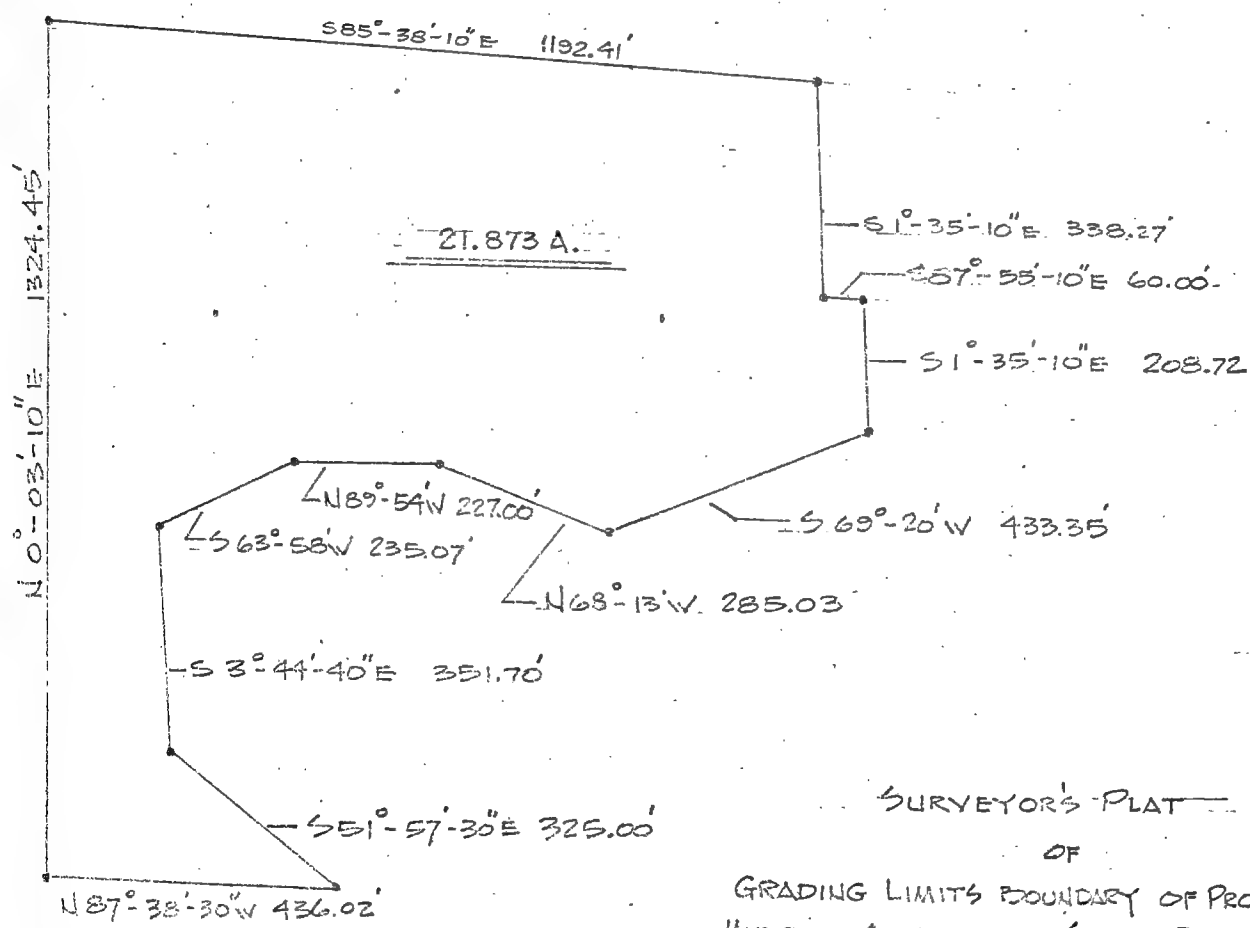 S85°-38'-10"E 1192.41'
N 0°-03'-10"E 1324.45'
27.873 A.
S 1°-35'-10"E 338.27'
S87°-55'-10"E 60.00'
S 1°-35'-10"E 208.72
N89°-54'W 227.00'
S 63°-58'W 235.07'
S 69°-20'W 433.35'
N68°-13'W. 285.03
S 3°-44'-40"E 351.70'
S51°-57'-30"E 325.00'
N 87°-38'-30"W 436.02'
SURVEYOR'S PLAT
OF
GRADING LIMITS BOUNDARY OF PRO